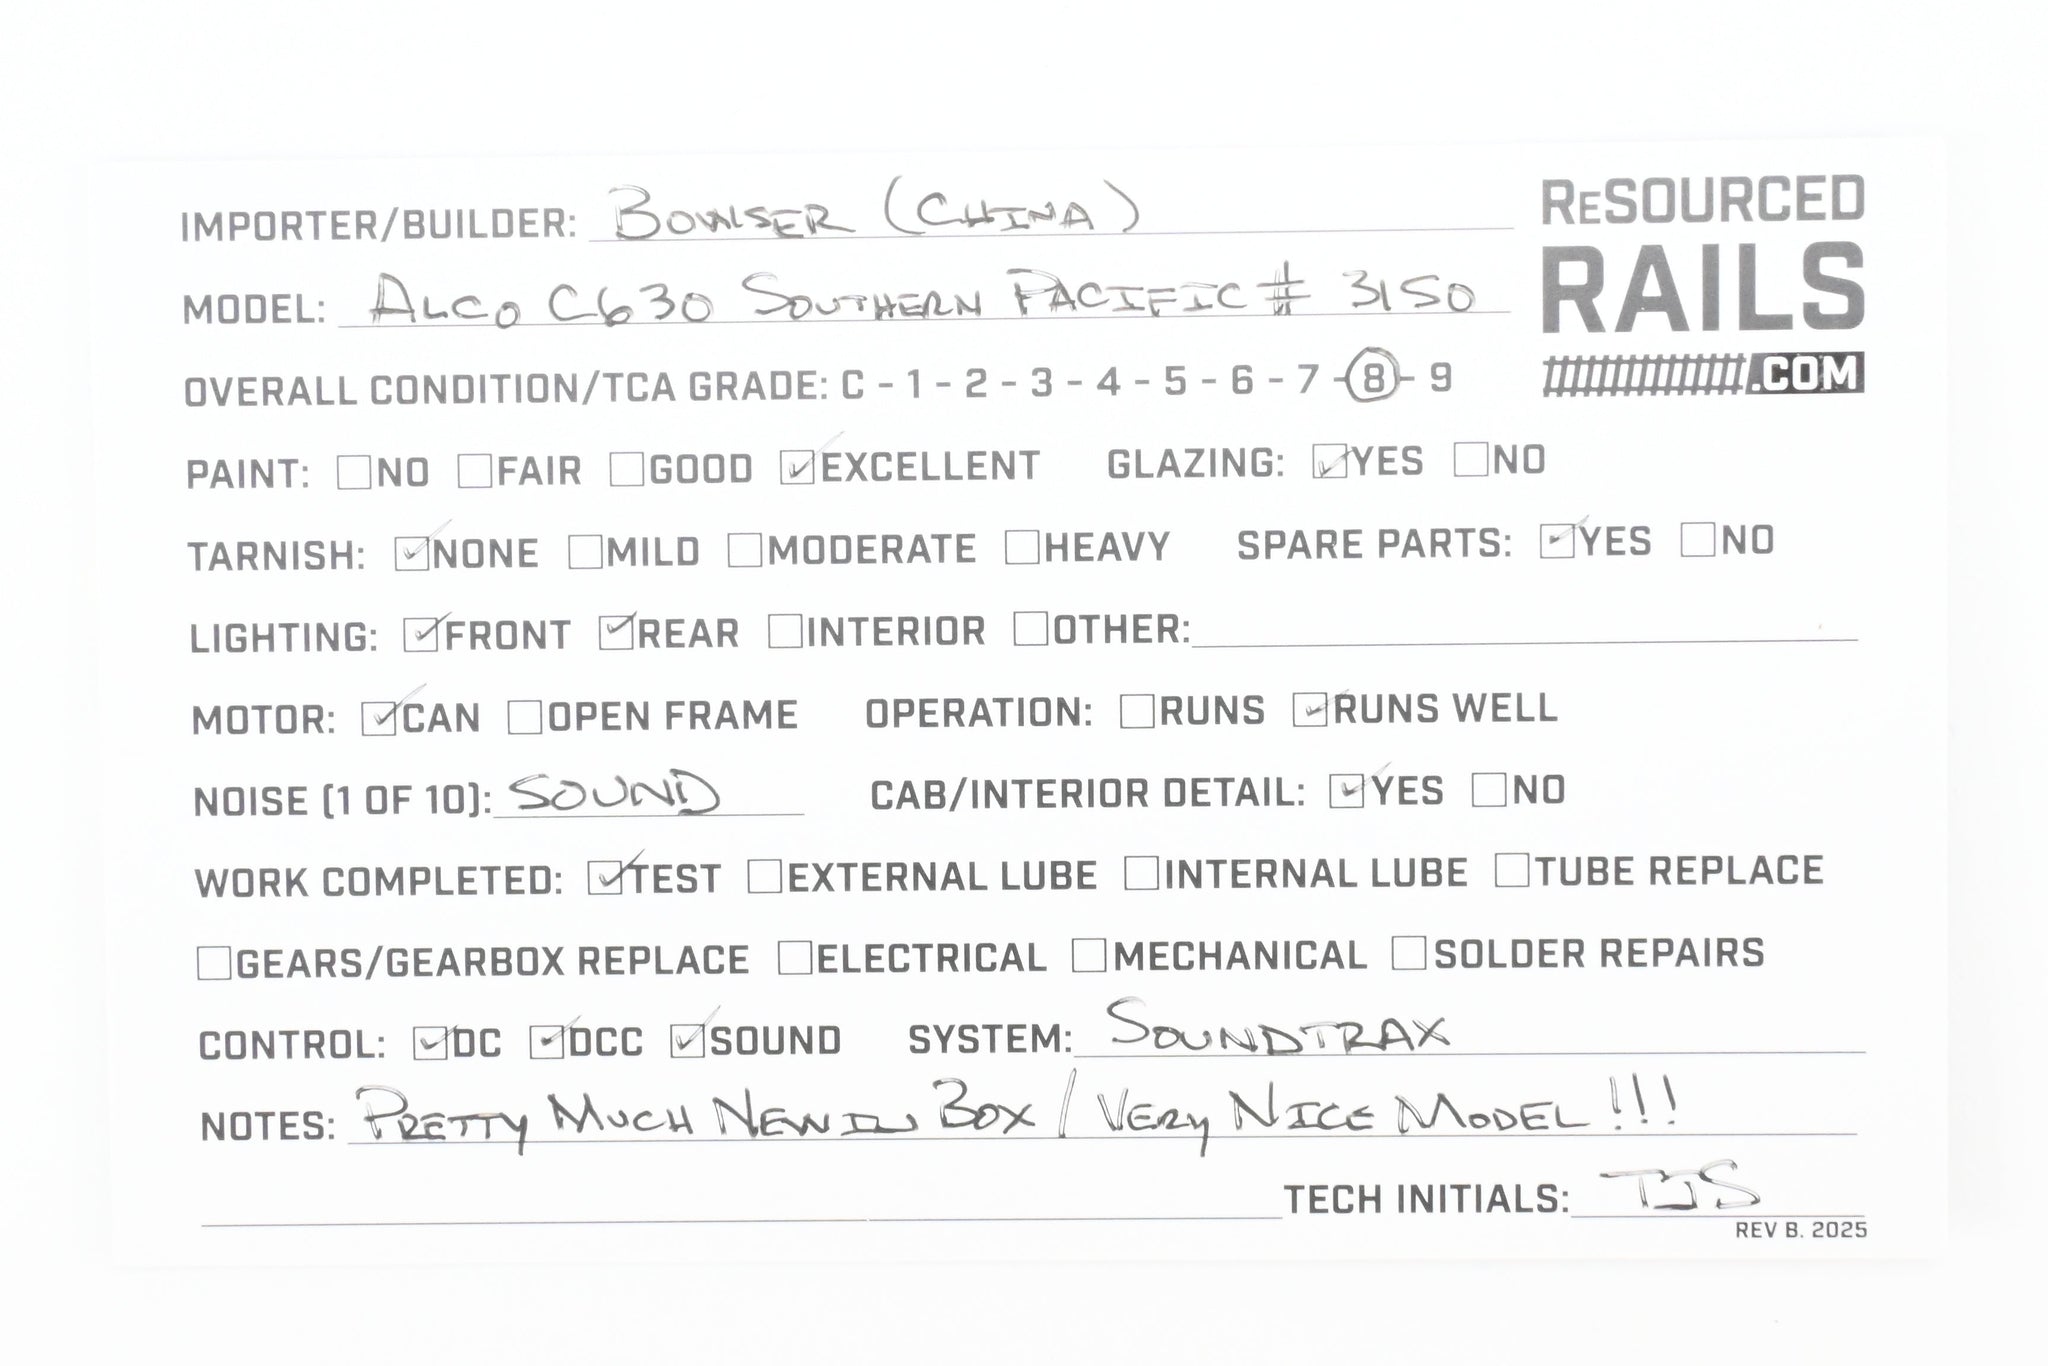 IMPORTER/BUILDER: BOWSER (CHINA)
ReSOURCED
RAILS
.COM
MODEL: ALCO C630 SOUTHERN PACIFIC # 3150
OVERALL CONDITION/TCA GRADE: C - 1 - 2 - 3 - 4 - 5 - 6 - 7 - 8 - 9
PAINT: NO FAIR GOOD EXCELLENT GLAZING: YES NO
TARNISH: NONE MILD MODERATE HEAVY SPARE PARTS: YES NO
LIGHTING: FRONT REAR INTERIOR OTHER:
MOTOR: CAN OPEN FRAME OPERATION: RUNS RUNS WELL
NOISE (1 OF 10): SOUND CAB/INTERIOR DETAIL: YES NO
WORK COMPLETED: TEST EXTERNAL LUBE INTERNAL LUBE TUBE REPLACE
GEARS/GEARBOX REPLACE ELECTRICAL MECHANICAL SOLDER REPAIRS
CONTROL: DC DCC SOUND SYSTEM: SOUNDTRAX
NOTES: PRETTY MUCH NEW IN BOX / VERY NICE MODEL!!!
TECH INITIALS: TJS
REV B. 2025